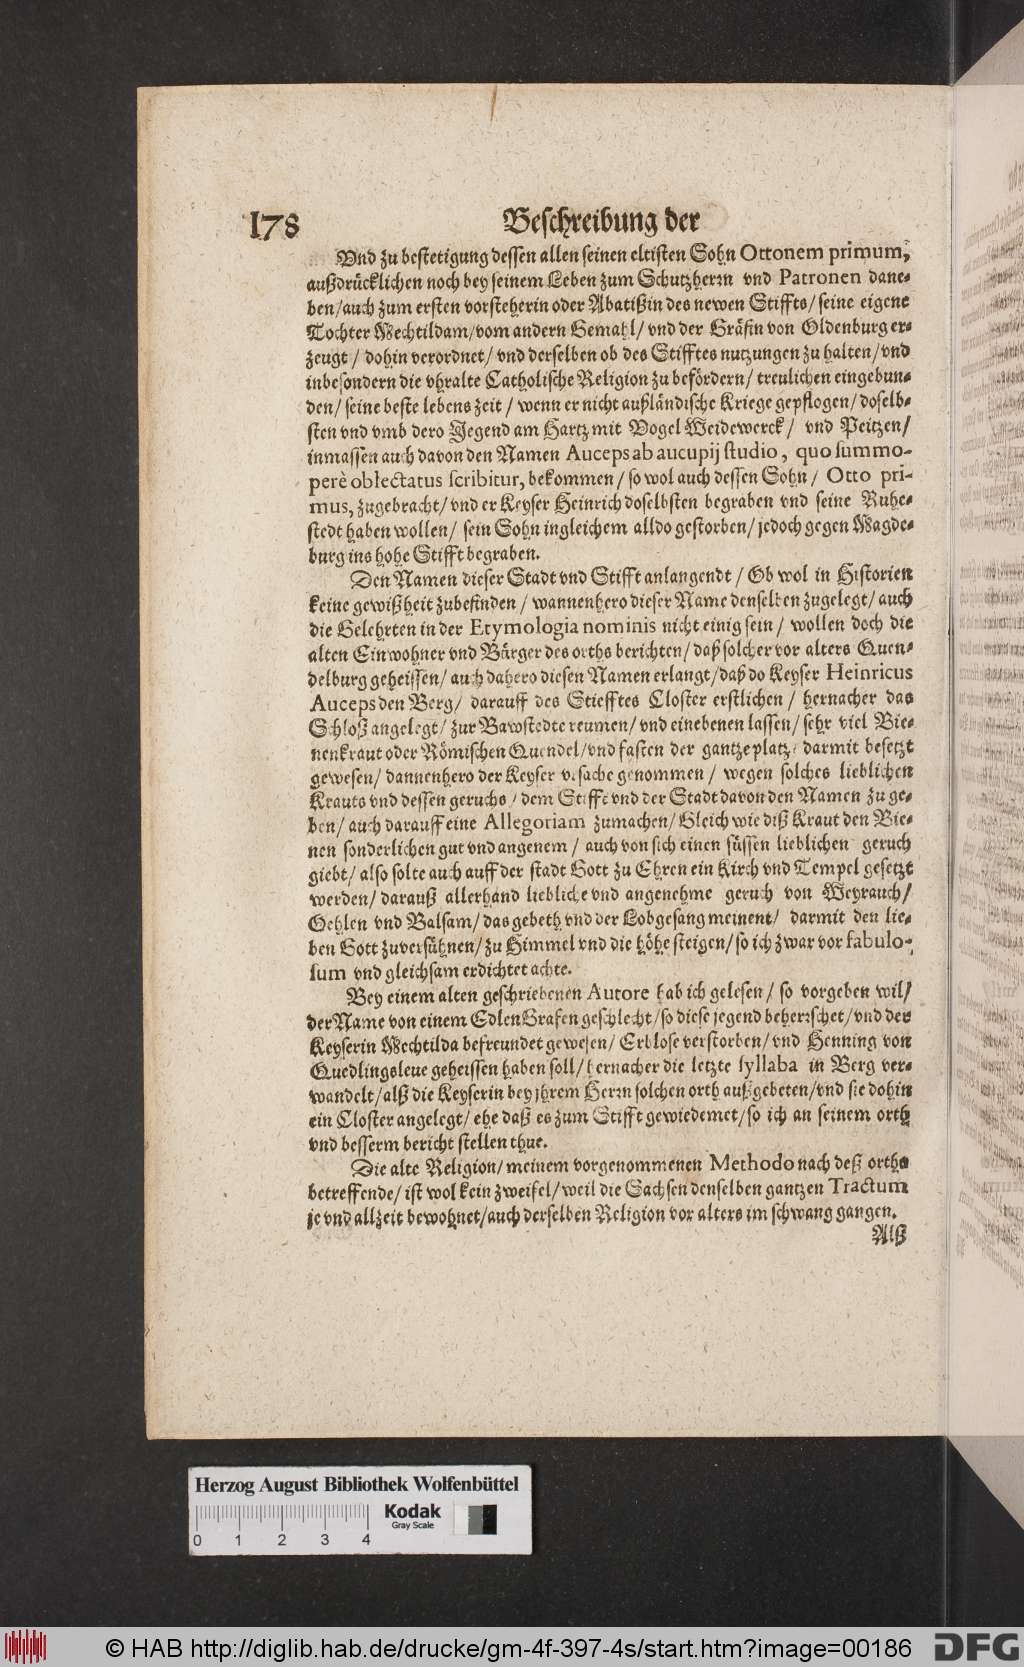 178
Beschreibung der
Vnd zu bestetigung dessen allen seinen eltisten Sohn Ottonem primum,
außdrücklichen noch bey seinem Leben zum Schutzherrn vnd Patronen dane-
ben/auch zum ersten vorsteherin oder Abatißin des newen Stiffts/ seine eigene
Tochter Mechtildam/vom andern Gemahl/ vnd der Gräfin von Oldenburg er-
zeugt / dohin verordnet/ vnd derselben ob des Stifftes nutzungen zu halten/vnd
inbesondern die vhralte Catholische Religion zu befördern/ treulichen eingebun-
den/ seine beste lebens zeit / wenn er nicht außländische Kriege gepflogen/ doselb-
sten vnd vmb dero Jegend am Hartz mit Vogel Weidewerck/ vnd Peitzen/
inmassen auch davon den Namen Auceps ab aucupij studio, quo summo-
perè oblectatus scribitur, bekommen/ so wol auch dessen Sohn/ Otto pri-
mus, zugebracht/ vnd er Keyser Heinrich doselbsten begraben vnd seine Ruhe-
stedt haben wollen/ sein Sohn ingleichem alldo gestorben/ jedoch gegen Magde-
burg ins hohe Stifft begraben.
Den Namen dieser Stadt vnd Stifft anlangendt / Ob wol in Historien
keine gewißheit zubefinden / wannenhero dieser Name denselben zugelegt/ auch
die Gelehrten in der Etymologia nominis nicht einig sein/ wollen doch die
alten Einwohner vnd Bürger des orths berichten/ daß solcher vor alters Quen-
delburg geheissen/ auch dahero diesen Namen erlangt/daß do Keyser Heinricus
Auceps den Berg/ darauff des Stiefftes Closter erstlichen / hernacher das
Schloß angelegt/ zur Bawstedte reumen/ vnd einebenen lassen/ sehr viel Bie-
nenkraut oder Römischen Quendel/vnd fasten der gantze platz/ darmit besetzt
gewesen/ dannenhero der Keyser vrsache genommen / wegen solches lieblichen
Krauts vnd dessen geruchs / dem Stifft vnd der Stadt davon den Namen zu ge-
ben/ auch darauff eine Allegoriam zumachen/ Gleich wie diß Kraut den Bie-
nen sonderlichen gut vnd angenem / auch von sich einen süssen lieblichen geruch
giebt/ also solte auch auff der stadt Gott zu Ehren ein Kirch vnd Tempel gesetzt
werden/ darauß allerhand liebliche vnd angenehme geruch von Weyrauch/
Oehlen vnd Balsam/ das gebeth vnd der Lobgesang meinent/ darmit den lie-
ben Gott zuversühnen/ zu Himmel vnd die höhe steigen/ so ich zwar vor fabulo-
sum vnd gleichsam erdichtet achte.
Bey einem alten geschriebenen Autore hab ich gelesen/ so vorgeben wil/
der Name von einem Edlen Grafen geschlecht/ so diese jegend beherrschet/ vnd der
Keyserin Mechtilda befreundet gewesen/ Erblose verstorben/ vnd Henning von
Quedlingsleue geheissen haben soll/ hernacher die letzte syllaba in Berg ver-
wandelt/ alß die Keyserin bey jhrem Herrn solchen orth außgebeten/vnd sie dohin
ein Closter angelegt/ ehe daß es zum Stifft gewiedemet/ so ich an seinem orth
vnd besserm bericht stellen thue.
Die alte Religion/ meinem vorgenommenen Methodo nach deß orths
betreffende/ ist wol kein zweifel/ weil die Sachsen denselben gantzen Tractum
je vnd allzeit bewohnet/auch derselben Religion vor alters im schwang gangen.
Alß
Herzog August Bibliothek Wolfenbüttel
Kodak
Gray Scale
0 1 2 3 4
© HAB http://diglib.hab.de/drucke/gm-4f-397-4s/start.htm?image=00186
DFG